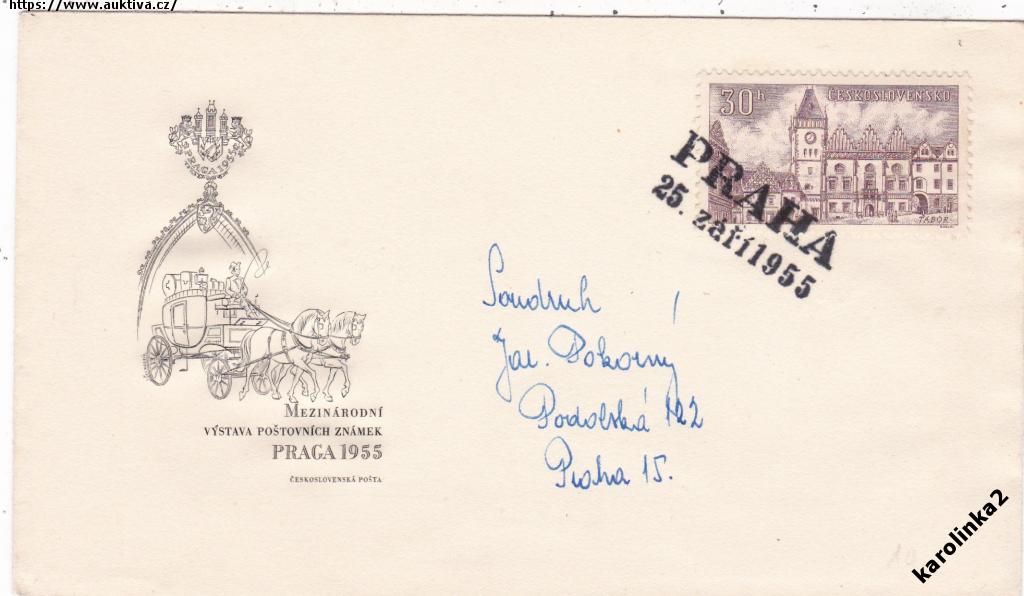 https://www.auktiva.cz/
PRAGA 1955
30h
ČESKOSLOVENSKO
TÁBOR
PRAHA
25. září 1955
Soudruh
Jar. Pokorný
Podolská 122
Praha 15.
MEZINÁRODNÍ
VÝSTAVA POŠTOVNÍCH ZNÁMEK
PRAGA 1955
ČESKOSLOVENSKÁ POŠTA
karolinka2